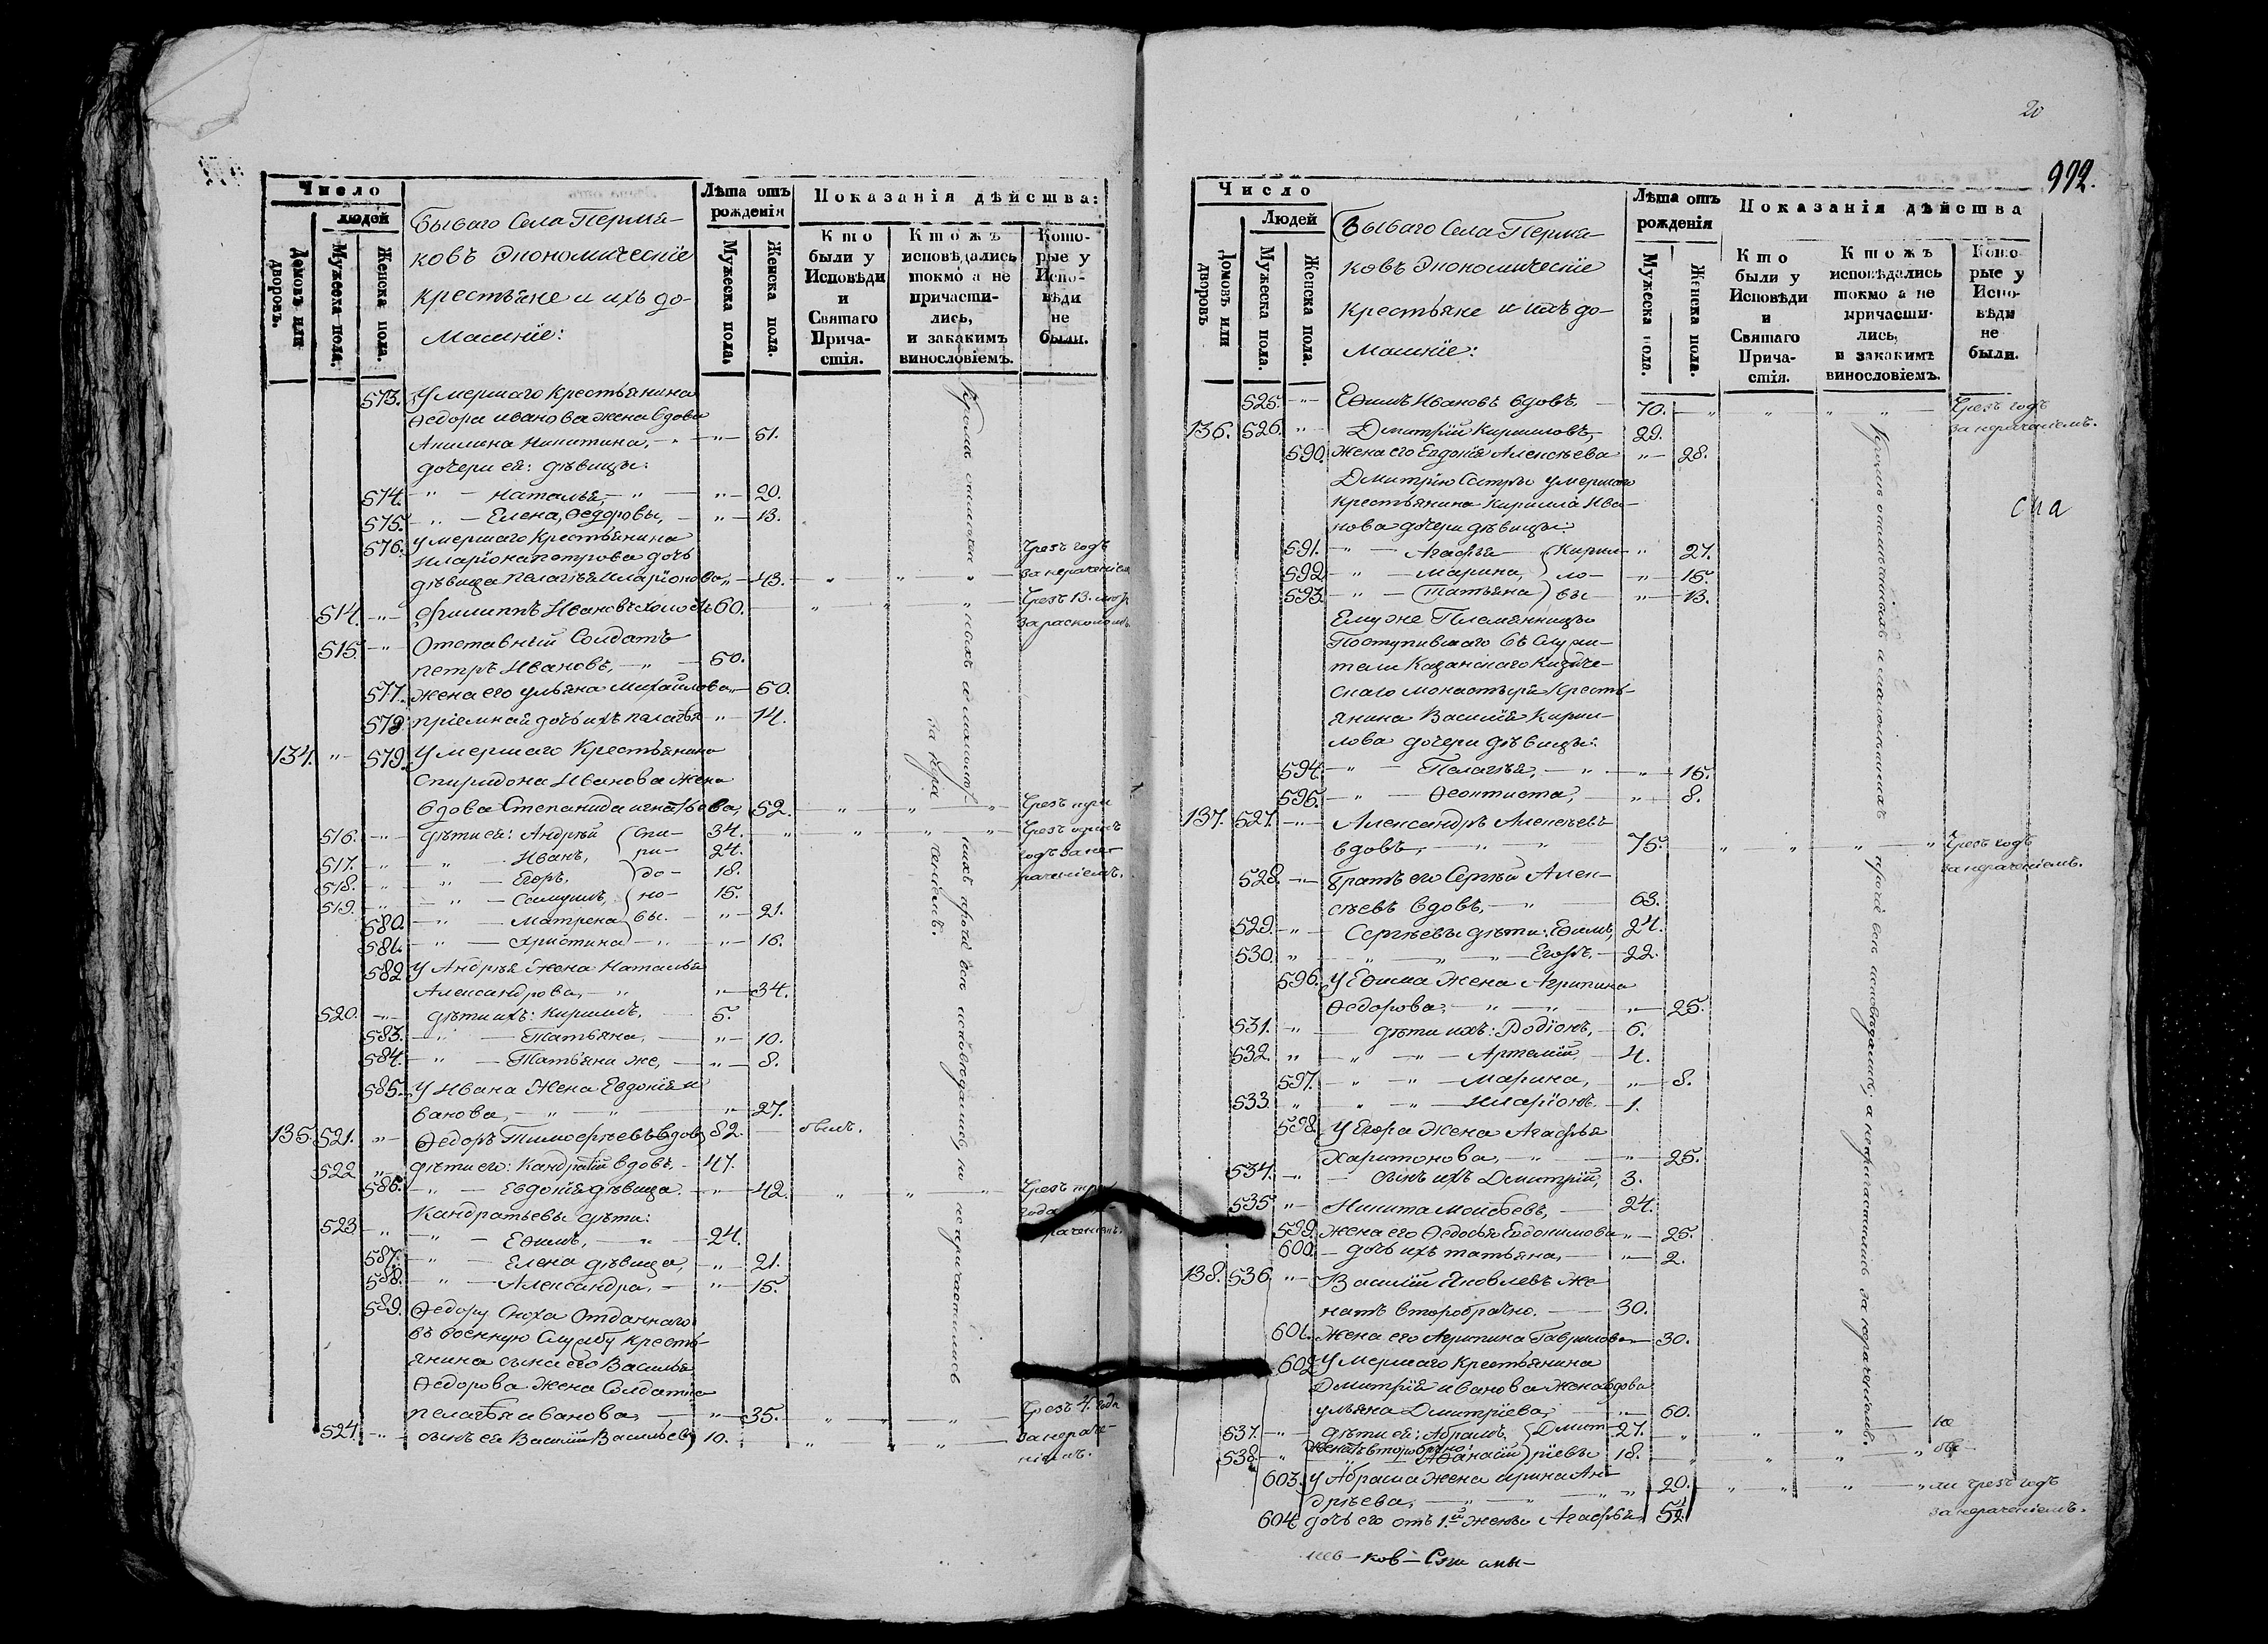 20
992.
Число
людей
Домовъ или дворовъ.
Мужеска пола.
Женска пола.
Бываго Села Перма-
ковъ Экономическіе
крестьяне и ихъ до-
машніе:
Лѣта отъ рожденія
Мужеска пола.
Женска пола.
Показанія дѣйства:
Кто были у Исповѣди и Святаго Прича- стія.
Ктожъ исповѣдались токмо а не причасти- лись, и закакимъ винословіемъ.
Кото- рые у Испо- вѣди не были.
573. Умершаго Крестьянина
Ѳедора Иванова жена вдова
Акилина Никитина, 51.
дочери ея: дѣвицы:
574. Наталья, 20.
575. Елена, Ѳедоровы, 13.
576. Умершаго Крестьянина
Иларіона Петрова дочь
дѣвица Пелагѣя Иларіонова, 43. Чрезъ годъ
за нераченіем
514. Филиппъ Ивановъ холостъ 60. Чрезъ 13. лѣтъ
за расколомъ.
515. Отставный Солдатъ
Петръ Ивановъ, 50.
577. Жена его Ульяна Михайлова 50.
578. пріемная дочь ихъ Палагѣя 14.
134. 579. Умершаго Крестьянина
Спиридона Иванова жена
вдова Степанида Игнатьева, 52. Чрезъ три
516. дѣти ея: Андрѣй Спи- 34. Чрезъ одинъ
517. Иванъ, ри- 24. годъ за не-
518. Егоръ, до- 18. раченіемъ.
519. Самуилъ, но- 15.
580. Матрена вы. 21.
581. Христина 16.
582 У Андрѣя жена Наталья
Александрова, 34.
520. дѣти ихъ: Кириллъ, 5.
583. Татьяна, 10.
584. Татьяна же, 8.
585. У Ивана жена Евдокія И
ванова, 27.
135. 521. Ѳедоръ Тимофѣевъ вдовъ 82. былъ.
522 дѣти его: Кандратій вдовъ, 47.
586. Евдокія дѣвица. 42. Чрезъ три
года
раченіемъ.
Кандратьевы дѣти:
523 Ефимъ, 24.
587. Елена дѣвица, 21.
588. Александра, 15.
589. Ѳедору Сноха Отданнаго
въ военную Службу кресть-
янина сына его Василья
Ѳедорова жена Солдатка
Пелагѣя Иванова, 35. Чрезъ 4. года
524. сынъ ея Василій Васильевъ 10. за нераче-
ніемъ.
прочіе всѣ исповѣдались, но не причастились
за нера ченіемъ.
Число
Людей
Домовъ или дворовъ
Мужеска пола.
Женска пола.
Бываго Села Перма-
ковъ Экономическіе
Крестьяне и ихъ до-
машніе:
Лѣта отъ рожденія
Мужеска пола.
Женска пола.
Показанія дѣйства
Кто были у Исповѣди и Святаго Прича- стія.
Ктожъ исповѣдались токмо а не причасти- лись, и закакимъ винословіемъ.
Кото рые у Испо- вѣди не были.
525. Ефимъ Ивановъ вдовъ, 70. Чрезъ годъ
за нераченіемъ.
136. 526. Дмитрій Кириловъ, 29.
590. Жена его Евдокія Алексѣева 28.
Дмитрію Сестры умершаго
крестьянина Кирилла Ива-
нова дочери дѣвицы:
591. Агафья Кирил- 27.
592 Марина, ло- 15.
593. Татьяна вы 13.
Ему же Племянницы
Поступившаго въ Служи-
тели Казанскаго Кизиче-
скаго монастыря кресть-
янина Василія Кирил-
лова дочери дѣвицы:
594. Пелагѣя, 15.
595. Ѳеоктиста, 8.
137. 527. Александръ Алексѣевъ
вдовъ, 75. Чрезъ годъ
за нераченіемъ.
528. братъ его Сергѣй Алек-
сѣевъ вдовъ, 63.
529. Сергѣевы дѣти: Ефимъ, 24.
530. Егоръ, 22.
596. У Ефима жена Агрипина
Ѳедорова, 25.
531. дѣти ихъ: Родіонъ, 6.
532. Артемій 4.
597. Марина, 8.
533. Иларіонъ. 1.
598. У Егора жена Агафья
Харитонова, 25.
534. сынъ ихъ Дмитрій, 3.
535 Никита Моисѣевъ, 24.
599. Жена его Ѳедосья Евдокимова 25.
600. дочь ихъ Татьяна, 2.
138. 536. Василій Яковлевъ же-
натъ второбрачно. 30.
601. Жена его Агрипина Гаврилова 30.
602 Умершаго крестьянина
Дмитрія Иванова жена вдова
Ульяна Дмитріева, 60.
537. дѣти ея: Абрамъ, Дмит- 27. не
женатъ второбрачно:
538. Афанасій ріевы 18. бы-
603. У Абрама жена Ирина Ан-
дрѣева, 20. ли чрезъ годъ
за нераченіемъ.
604 дочь его отъ 1.й жены Агафья 5
прочіе всѣ исповѣдались, а не причастились за нераченіемъ.
сна
ков-